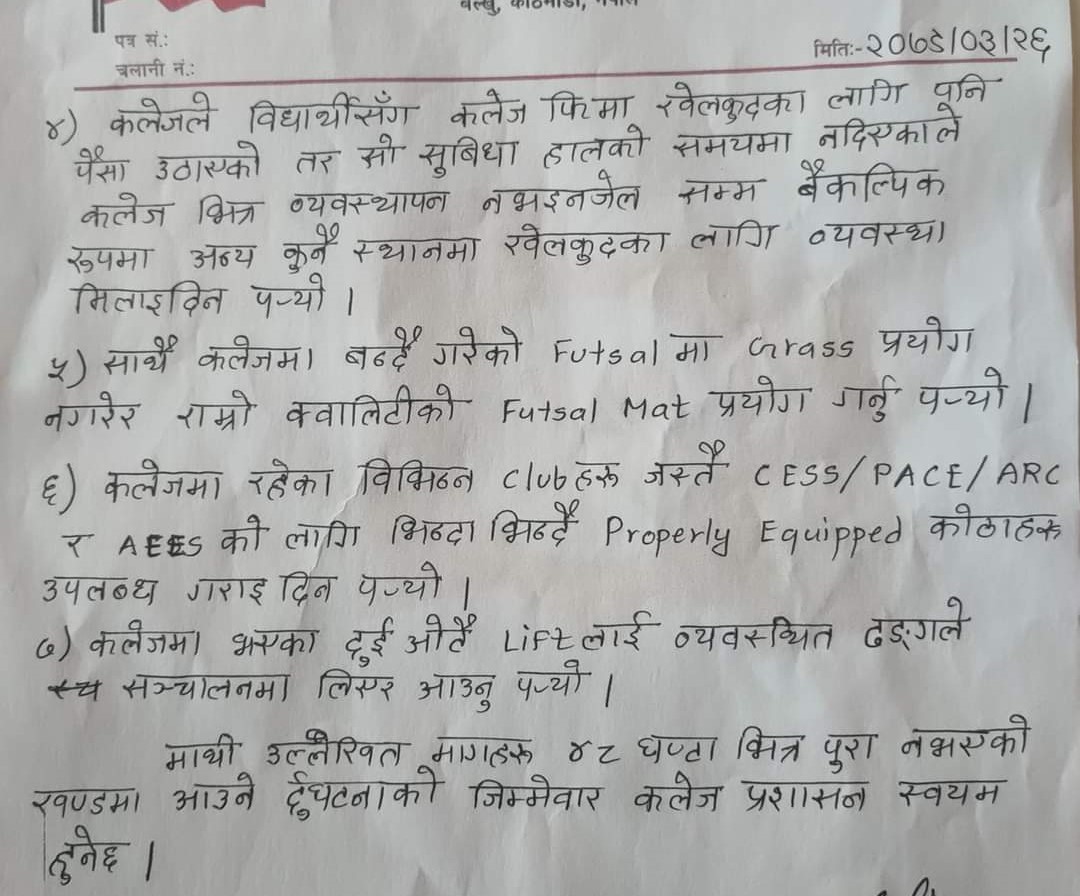 बल्खु, काठमाडौं, नेपाल
पत्र सं.:
चलानी नं.:
मिति:- २०७९/०३/२६
४) कलेजले विद्यार्थीसँग कलेज फिमा खेलकुदका लागि पनि
पैसा उठाएको तर सो सुबिधा हालको समयमा नदिएकाले
कलेज भित्र व्यवस्थापन नभइनजेल सम्म बैकल्पिक
रुपमा अन्य कुनै स्थानमा खेलकुदका लागि व्यवस्था
मिलाइदिन पर्‍यो ।
५) साथै कलेजमा बन्दै गरेको Futsal मा Grass प्रयोग
नगरेर राम्रो क्वालिटीको Futsal Mat प्रयोग गर्नु पर्‍यो ।
६) कलेजमा रहेका विभिन्न Club हरू जस्तै CESS/PACE/ARC
र AEES को लागि भिन्दा भिन्दै Properly Equipped कोठाहरू
उपलब्ध गराइ दिन पर्‍यो ।
७) कलेजमा भएका दुई ओटै Lift लाई व्यवस्थित ढङ्गले
सञ्चालनमा लिएर आउनु पर्‍यो ।
माथी उल्लेखित मागहरू ४८ घण्टा भित्र पुरा नभएको
खण्डमा आउने दुर्घटनाको जिम्मेवार कलेज प्रशासन स्वयम
हुनेछ ।